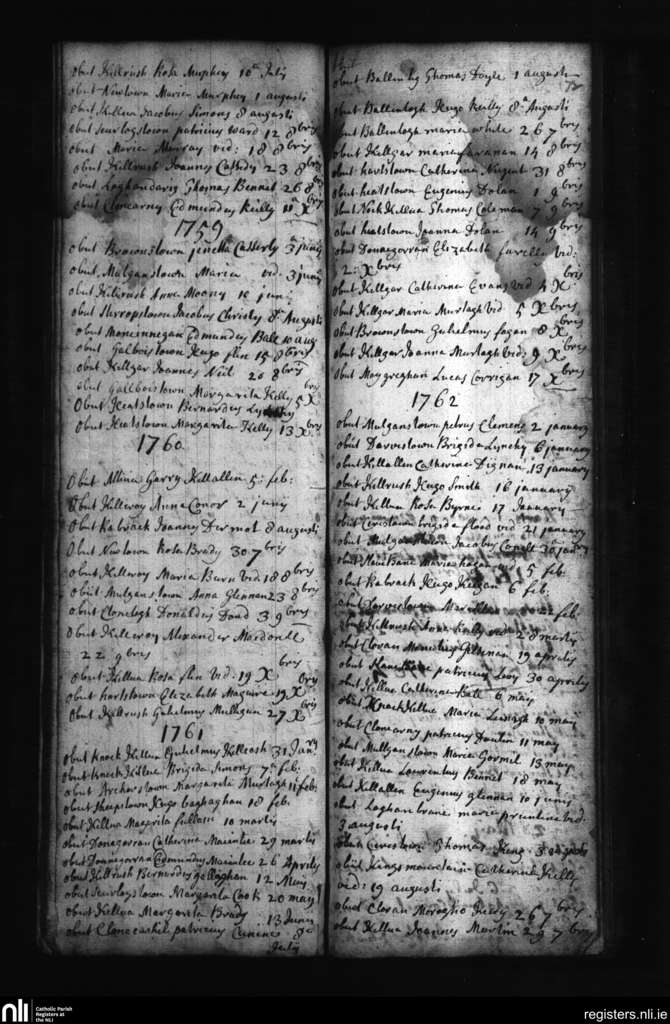 obiit Killrush Rosa Murphey 10a July
obiit Newtown Maria Murphey 1 augusti
obiit Killua Jacobus Simons 8 augusti
obiit Scurlogstown patricius ward 12 8bris
obiit Maria Murray vid: 18 8bris
obiit Killrush Joannes Cassidy 23 8bris
obiit Loghandaris Thomas Bennet 26 8bris
obiit Cloncarny Edmundus Reilly 11a Xbris
1759
obiit Brownstown Jenetta Casserly 3a junij
obiit Mulganstown Maria vid. 3 junij
obiit Killrush Anna Moony 10 junij
obiit Jacobus Christy 8a Augusti
obiit Moneinnegan Edmundus Bale 10 aug
obiit Galboistown Hugo flin 15 8bris
obiit Killgar Joannes Neil 20 8bris
obiit Gallboistown Margarita Kelly 5 Xbris
obiit Heatstown Bernardus
obiit Heatstown Margarita Kelly 13 Xbris
1760
obiit Altina Garry Killallen 5: feb:
obiit Killroy Anna Conor 2 junij
obiit Kabrack Joannes Dermot 8 augusti
obiit Newtown Rosa Brady 30 7bris
obiit Killroy Maria Burn vid. 18 8bris
obiit Mulganstown Anna Glennan 23 8bris
obiit Clonelogh Donaldus Dond 3 9bris
obiit Killroy Alexander Macdonell
22 9bris
obiit Killua Rosa flin vid: 19 Xbris
obiit hartstown Elizabeth Maguire 19 Xbris
obiit Killrush Guhelmus Mulligan 27 Xbris
1761
obiit knock Killua Guhelmus Killcash 31 Janry
obiit knock Killua Brigida Simons 7a feb:
obiit Archerstown Margarita Murtagh 11 feb:
obiit Sheepstown Hugo 18 feb.
obiit Killua Margarita fullam 10 martis
obiit Donagorran Catherina Macentee 29 martis
obiit Donnagorran Edmundus Macentee 26 Aprilis
obiit Killrush Bernardus gellaghan 12 Maij
obiit Scurlogstown Margarita Cook 20 maij
obiit Killua Margarita Brady 13 Junij
obiit patricius 8a
Julij
72
obiit Ballinlug Thomas Doyle 1 augusti
obiit Ballinlogh Hugo Reilly 8a Augusti
obiit Ballinlogh maria white 26 7bris
obiit Killgar maria 14 8bris
obiit hartstown Catherina Nugent 31 8bris
obiit heatstown Eugenius Dolan 1 9bris
obiit Nock Killua Thomas Coleman 7 9bris
obiit heatstown Joanna Dolan 14 9bris
obiit Donnagorran Elizabeth farelly vid:
2: Xbris
obiit Killgar Catherina Evans vid 4 Xbris
obiit Killgar Maria Murtagh vid: 5 Xbris
obiit Brownstown Guhelmus fagan 8 Xbris
obiit Killgar Joanna Murtagh vid: 9 Xbris
obiit Moygreghan Lucas Corrigan 17 Xbris
1762
obiit Mulganstown petrus Clemens 2 january
obiit Darvistown Brigida Lynchy 6 january
obiit Killallen Catherina Dignan 13 january
obiit Killrush Hugo Smith 16 january
obiit Killua Rosa Byrne 17 January
obiit brigida flood vid 21 january
obiit Jacobus 30 janry
obiit Maria vid: 5 feb:
obiit Kabrack Hugo Keegan 6 feb:
obiit 22 feb.
obiit Killrush Anna Reilly vid: 28 martis
obiit Cloran Glennan 19 aprilis
obiit patricius 30 aprilis
obiit Killua Catherina Bale 6 maij
obiit Knock Killua Maria 10 maij
obiit Cloncarny patricius 11 maij
obiit Mullganstown Maria Gormil 13 maij
obiit Killua Laurentius Bennet 18 maij
obiit Killallen Eugenius glennan 10 junij
obiit Loghanbrane maria vid:
3 augusti
obiit Thomas King
obiit Kings mountain Catherina Kelly
vid: 19 augusti
obiit Cloran 26 7bris
obiit Killua Joannes Martin 29 7bris
nli
Catholic Parish
Registers at
the NLI
registers.nli.ie